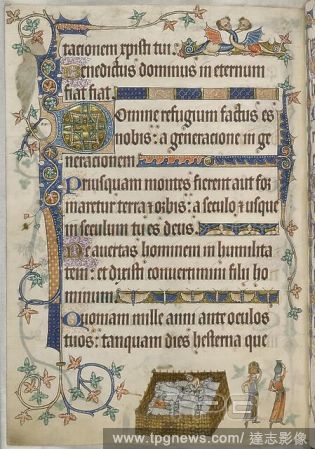 tacionem xpisti tui.
Benedictus dominus in eternum
fiat fiat.
Domine refugium factus es
nobis: a generacione in ge
neracionem
Priusquam montes fierent aut for
maretur terra et orbis: a seculo et usque
in seculum tu es deus.
Ne avertas hominem in humilita
tem: et dixisti convertimini filii ho
minum
Quoniam mille anni ante oculos
tuos: tanquam dies hesterna que
www.tpgnews.com/達志影像